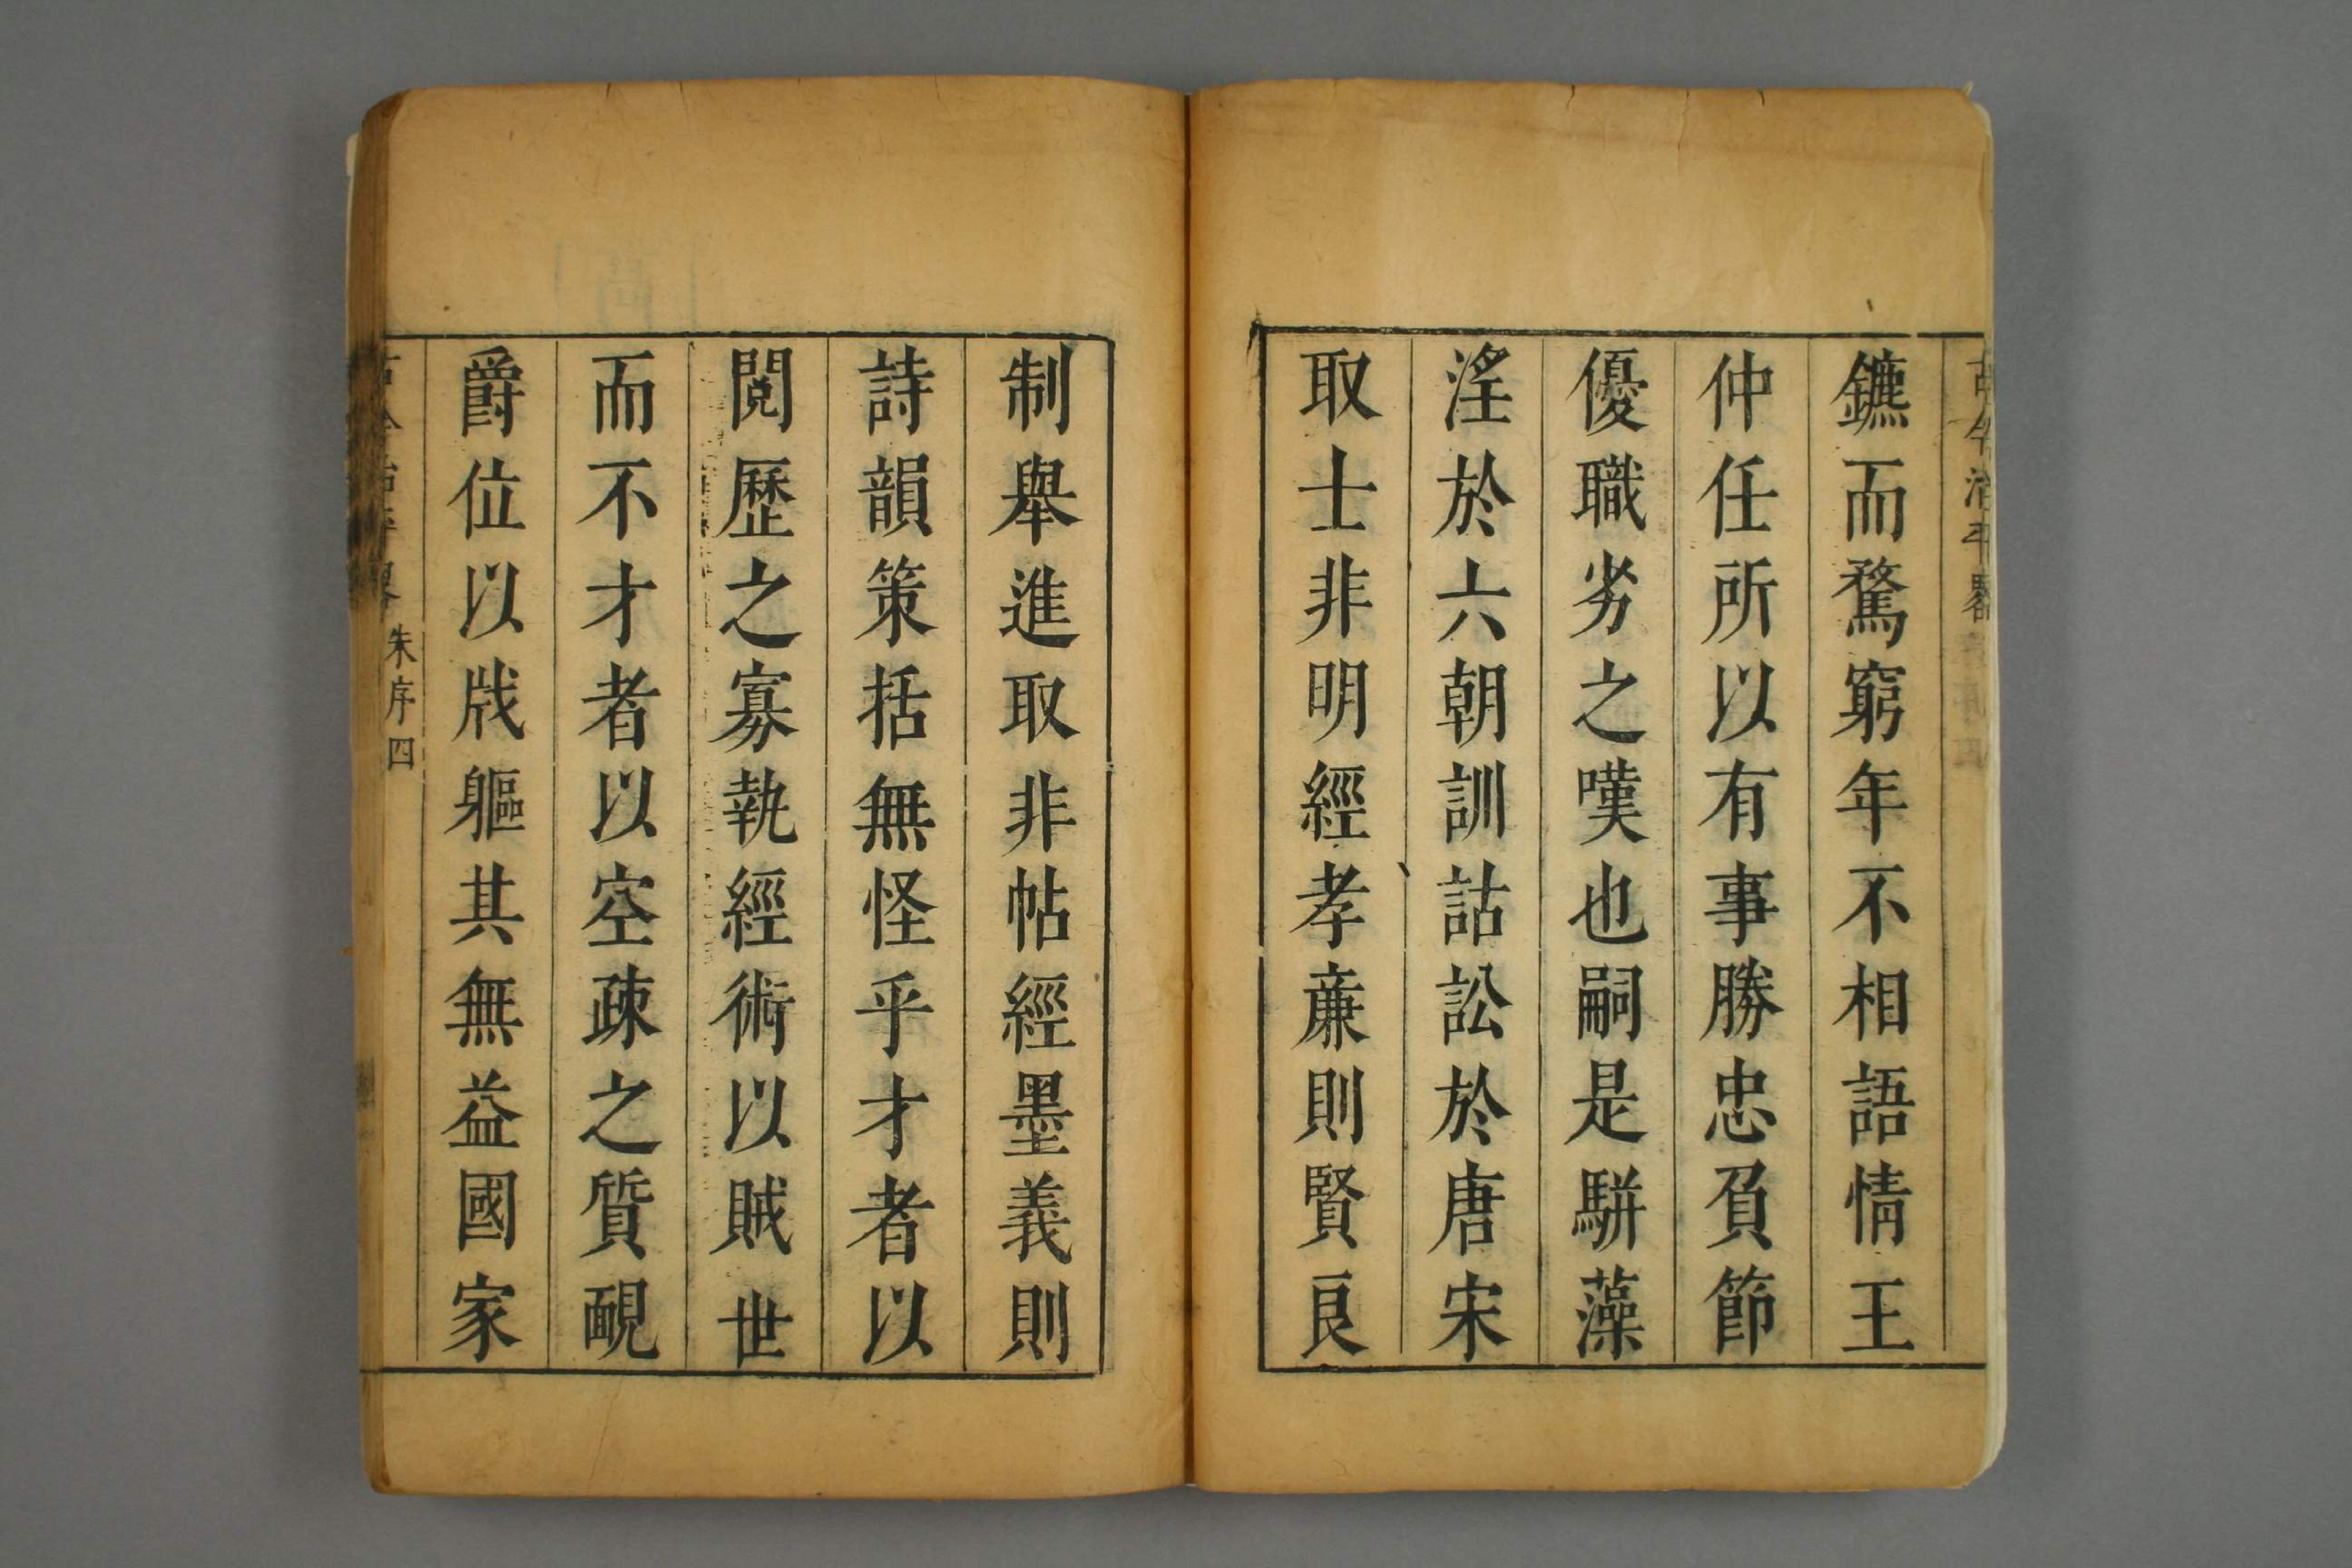 古今治平畧
鑣而騖窮年不相語情王
仲任所以有事勝忠負節
優職劣之嘆也嗣是駢藻
淫於六朝訓詁訟於唐宋
取士非明經孝亷則賢良
制舉進取非帖經墨義則
詩韻策括無怪乎才者以
閱歷之寡執經術以賊世
而不才者以空疎之質靦
爵位以戕軀其無益國家
朱序四